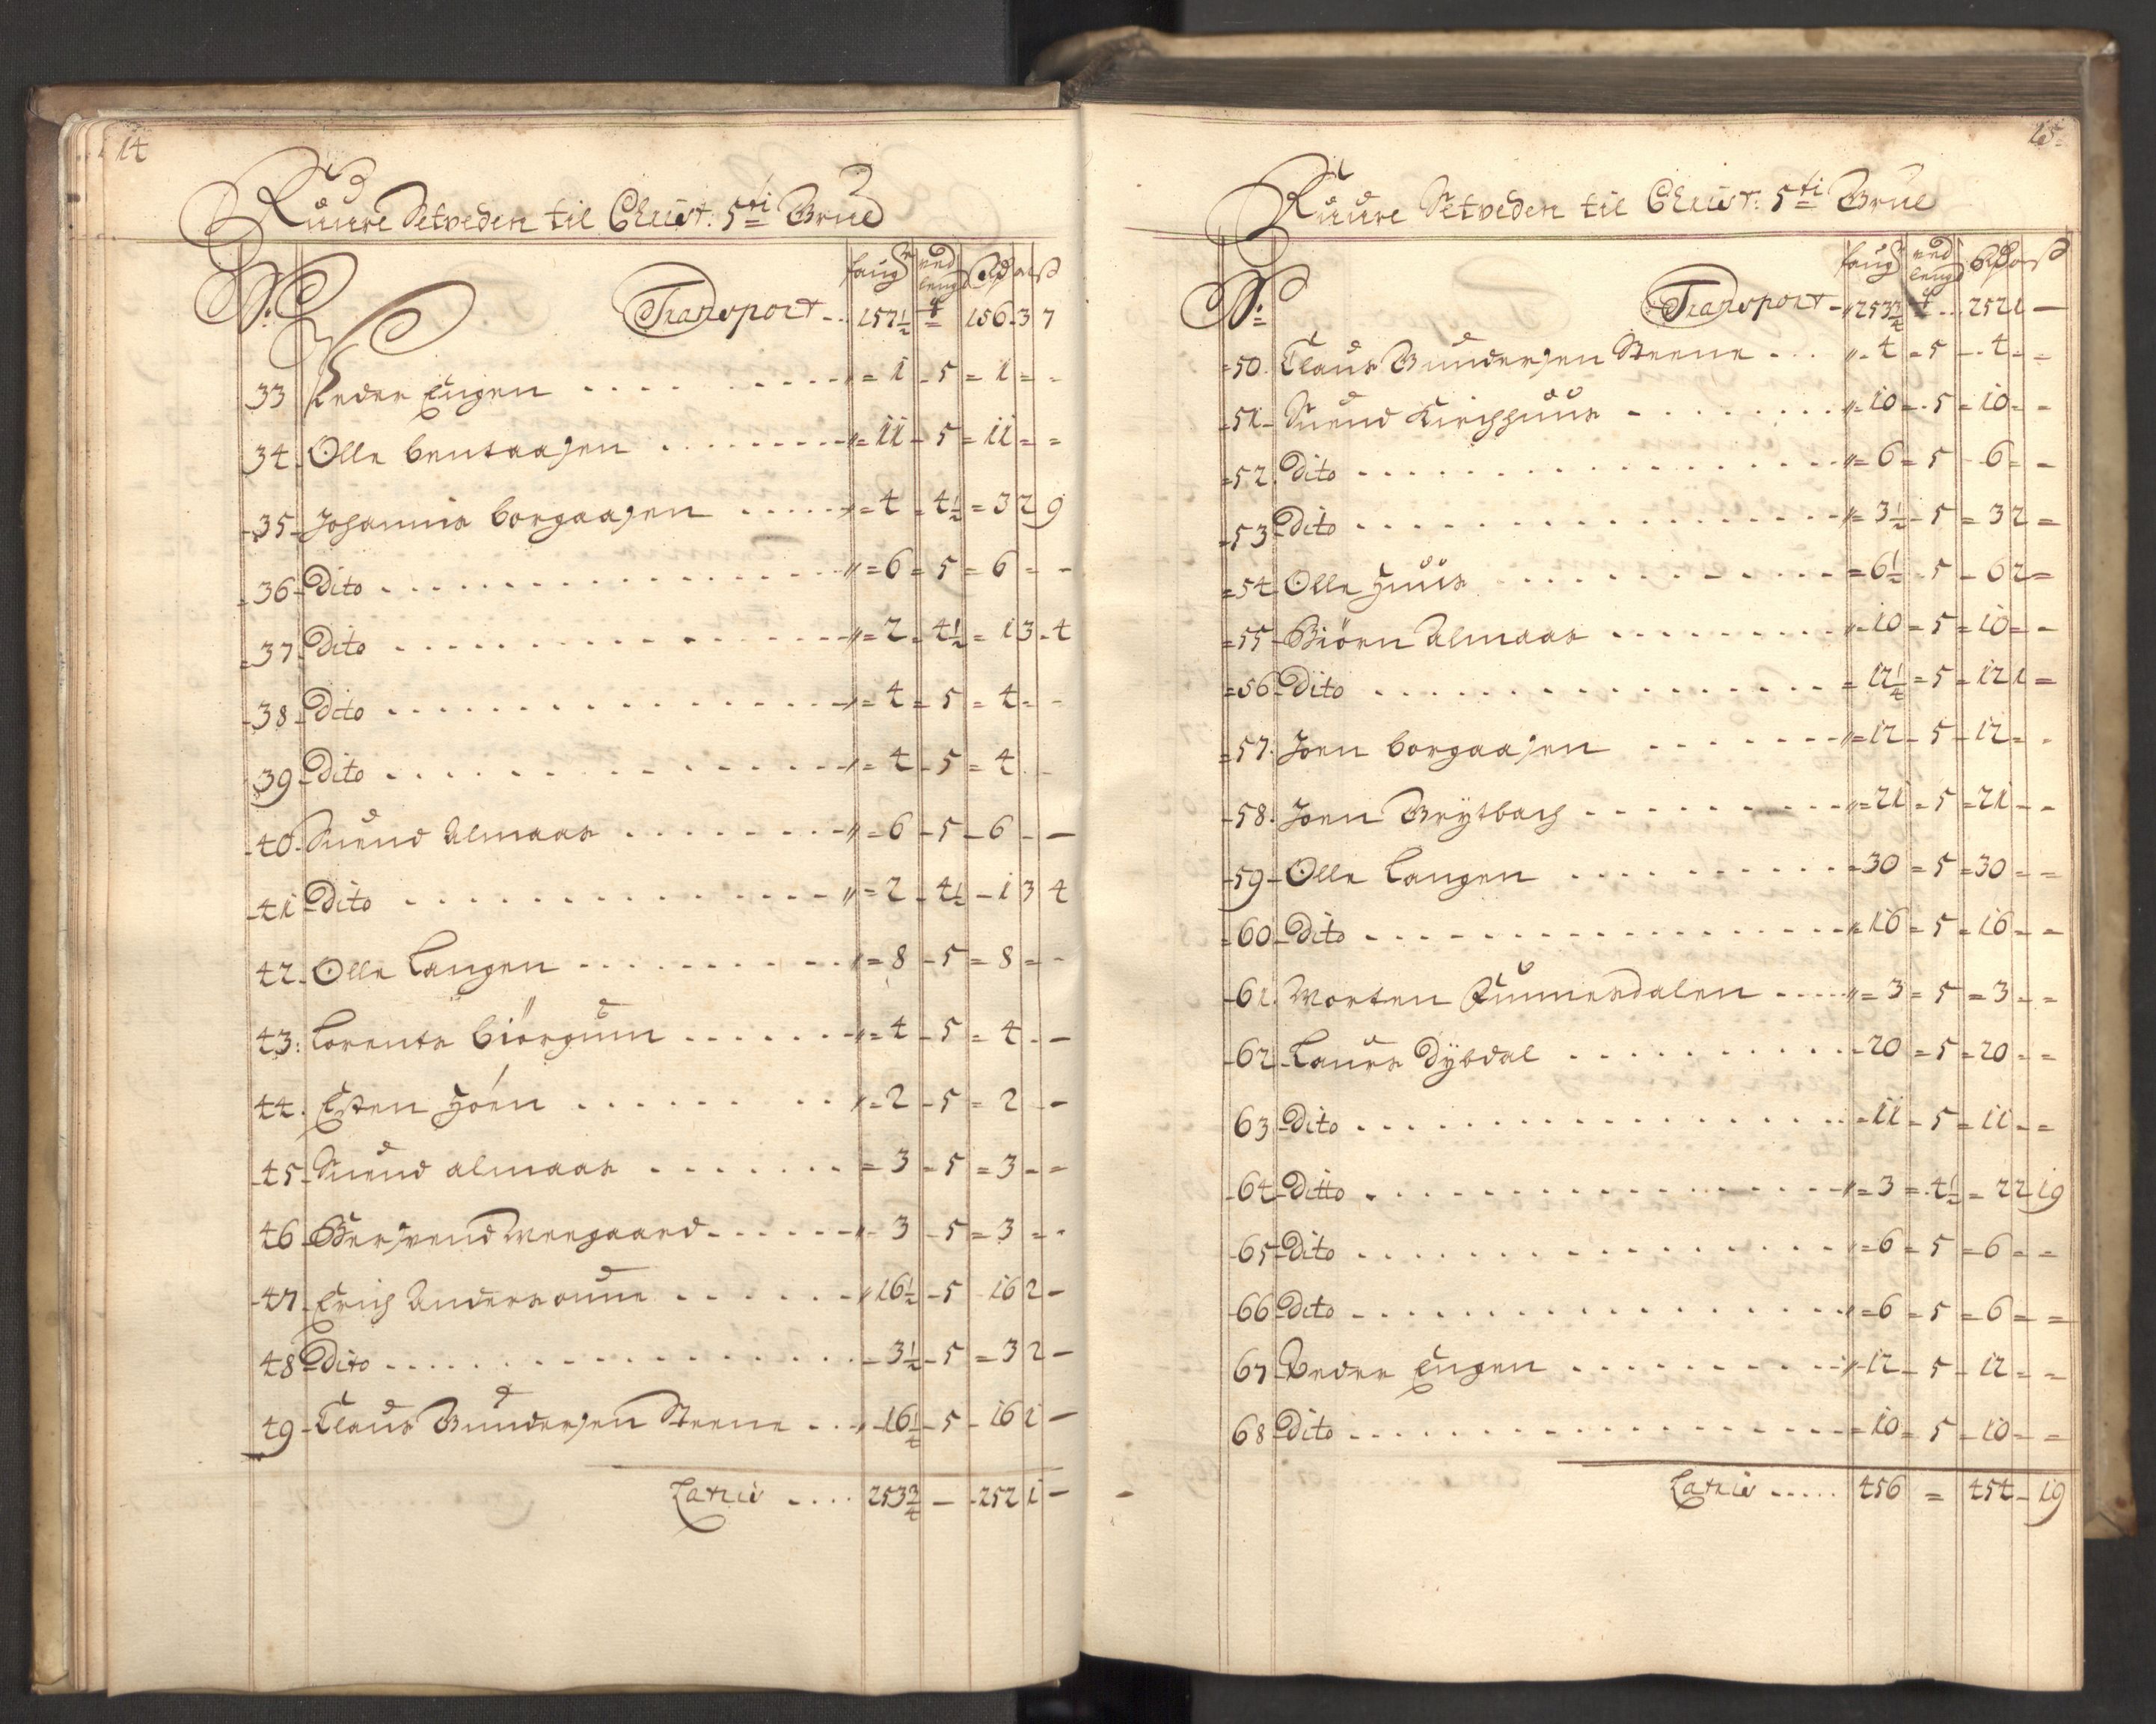 14
Ruure Setveden til Christ: 5ti Grue
No: faug ved lengd Rd ort ß
Transport - 157½ 4 156 - 3 7
33 Peder Engen 1 - 5 = 1 = -
34. Olle Bentaasen 11 - 5 = 11 = =
35 Johannis Borgaasen 4 - 4½ = 3 2 9
36 Dito 6 = 5 = 6 = -
37 Dito 2 - 4½ = 1 3 - 4
38 Dito 4 = 5 = 4 = -
39 Dito 4 - 5 = 4 - -
40. Suend Almaas 6 - 5 - 6 - -
41 Dito 2 - 4½ - 1 3 4
42. Olle Langen 8 - 5 = 8 = -
43: Lorents Biörgum 4 - 5 = 4 - -
44. Esten Höen 2 - 5 = 2 - -
45 Suend almaas 3 - 5 = 3 - =
46 Bersvend Moegaard 3 - 5 = 3 = -
47. Erich Andersoune 16½ - 5 16 2 -
48 Dito 3½ - 5 = 3 2 -
49 Claus Gundersen Steene 16¼ - 5 - 16 1 -
Latris 253¾ - 252 1 -
15
Ruure Setveden til Christ: 5ti Grue
No: faug ved lengd Rd ort ß
Transport - 253¾ 4 252 1 -
50. Claus Gundersen Steene 4 = 5 - 4 - =
51 Suend Kirchhuus 10 - 5 = 10 = -
52. Dito 6 = 5 - 6 = -
53 Dito 3½ - 5 = 3 2 =
54 Olle Huus 6½ - 5 - 6 2 =
55 Biörn Almaas 10 = 5 = 10 = -
56 Dito 12¼ = 5 = 12 1 =
57. Joen Borgaasen 12 - 5 - 12 = -
58. Joen Brytbach 21 = 5 = 21 - -
59 Olle Langen 30 = 5 = 30 = =
60 Dito 16 = 5 = 16 - =
61. Morten Rumesdalen 3 = 5 = 3 - =
62. Laurs Dybdal 20 = 5 = 20 = =
63 Dito 11 - 5 = 11 - =
64 Ditto 3 = 4½ = 2 2 19
65 Dito 6 = 5 = 6 = =
66 Dito 6 = 5 = 6 = =
67 Peder Engen 12 - 5 - 12 = =
68 Dito 10 = 5 - 10 = =
Latris 456 = 454 - 19